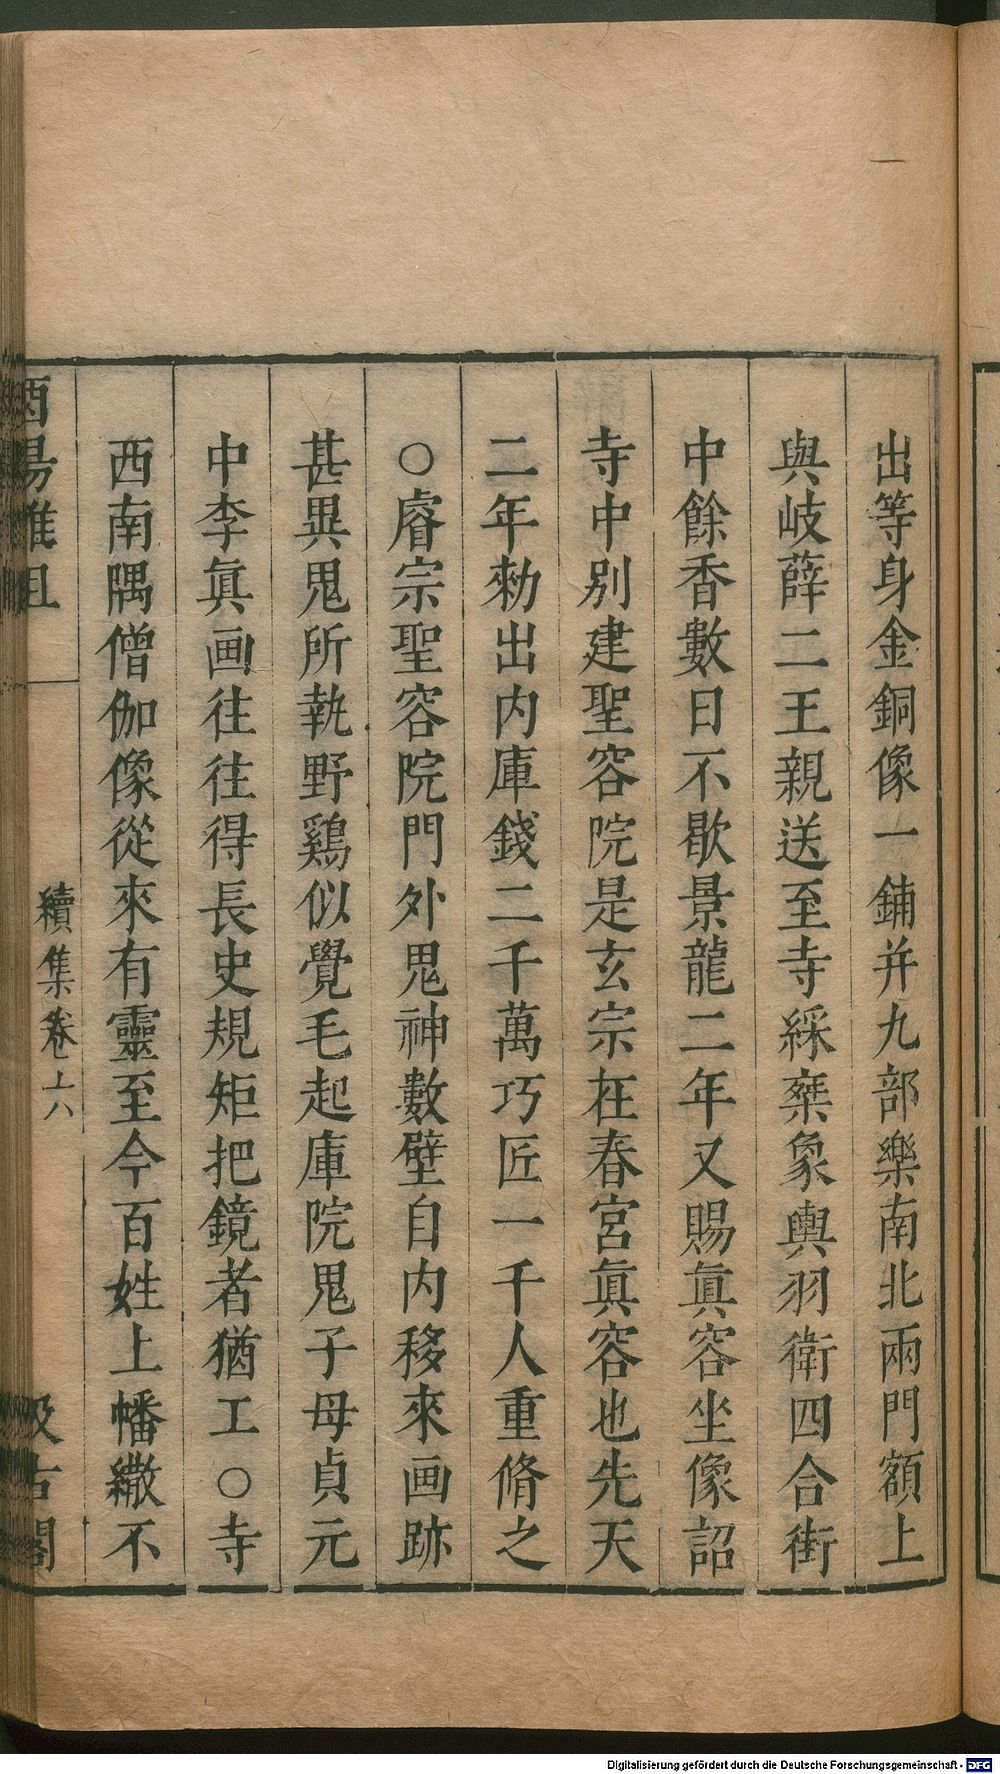 出等身金銅像一鋪并九部樂南北兩門額上
與岐薛二王親送至寺綵椉象輿羽衛四合街
中餘香數日不歇景龍二年又賜眞容坐像詔
寺中別建聖容院是玄宗在春宮眞容也先天
二年勅出内庫錢二千萬巧匠一千人重脩之
○睿宗聖容院門外鬼神數壁自内移來画跡
甚異鬼所執野鷄似覺毛起庫院鬼子母貞元
中李眞画往往得長史規矩把鏡者猶工○寺
西南隅僧伽像從來有靈至今百姓上幡繖不
酉陽雜俎 續集卷六 汲古閣
Digitalisierung gefördert durch die Deutsche Forschungsgemeinschaft - DFG